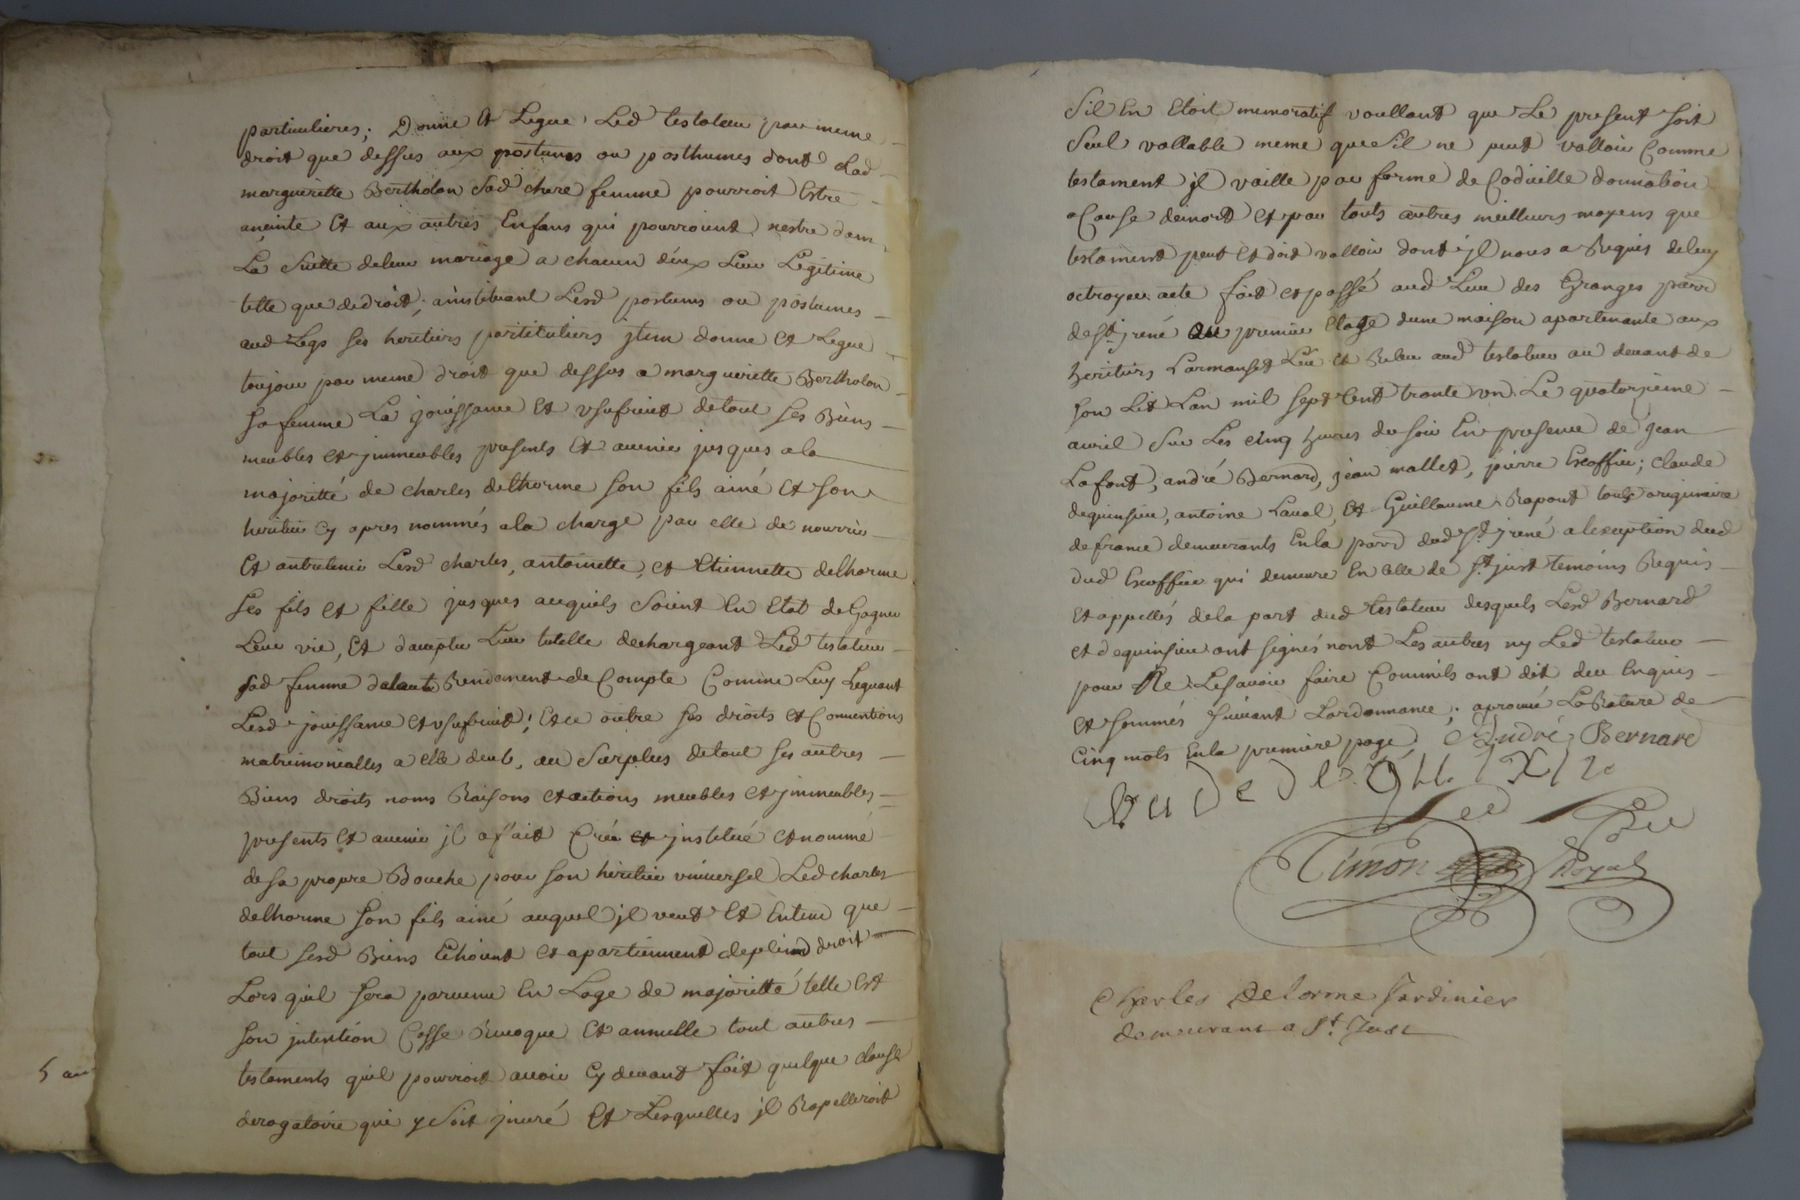 particulieres; Donne et Legue Led testateur par meme
droit que dessus aux postumes ou posthumes dont Lad
margueritte Bertholon Sad chere femme pourroit Estre
anceinte Et aux autres Enfans qui pourroient nestre dans
La Suitte deleur mariage a chacun deux Leur Legitime
telle que dedroit; ainstituant Lesd postumes ou postumes
aud Legs ses heritiers partituliers jtem donne et Legue
toujour par meme droit que dessus a margueritte Bertholon
sa femme La jouissance et usufruit detout ses Biens
meubles et jmmeubles presents et avenir jusques ala
majoritté de charles delhorme son fils ainé et son
heritier cy apres nommés ala charge par elle de nourrir
Et antretenir Lesd charles, antoinette, et Etiennette delhorme
ses fils et fille jusques acequils Soient En Etat de Gagner
Leur vie, Et daccepter Leur tutelle dechargeant Led testateur
sad femme Rendement de Compte Comme Luy Leguant
Lesd jouissance et usufruit; Et ce outre ses droits et Conventions
matrimonialles a elle deub, au Surplus detout ses autres
Biens droits noms Raisons et actions meubles et jmmeubles
presents et avenir jl a fait Créé et jnstitué et nommé
de sa propre Bouche pour son heritier universel Led charles
delhorme son fils ainé auquel jl veut et Entend que
tout sesd Biens Echoient et apartiennent deplind droit
Lors quil sera parvenu En Lage de majoritté telle Est
son jntention Casse Revoque Et annulle tout autres
testaments quil pourroit avoir cy devant fait quelque clause
derogatoire qui y soit jnceré Et Lesquelles jl Rapelleroit
5 an
Sil En Etoit memoratif voullant que Le present soit
Seul vallable meme que Sil ne peut valloir Comme
testament jl vaille par forme de Codicille donnation
a Cause demort et par touts autres meilleurs moyens que
testament peut et doit valloir dont jl nous a Requis deluy
octroyer acte fait et passé aud Lieu des Granges parr
de St jrené au premier Etage dune maison apartenante aux
heritiers Larmanset Leu et Releu aud testateur au devant de
son Lit Lan mil sept Cent trente un Le quatorzieme
avril Sur Les cinq heures du soir En presence de jean
Lafont, andré Bernard, jean mallet, pierre Escoffier; claude
dequinsieu, antoine Laval, et Guillaume Rapout touts originaire
de france demeurants En la parr dud St jrené a lexception dud
dud Escoffier qui demeure En Celle de St just temoins Requis
et appellés dela part dud testateur desquels Lesd Bernard
et dequinsieu ont signés nont Les autres ny Led testateur
pour Ne Lesavoir faire Commils ont dit deu Enquis
et sommés suivant Lordonnance; aprouvé La Rature de
Cinq mots En la premiere page André Bernard
Timon Royal
Charles Delorme Jardinier
demeurant a St Just